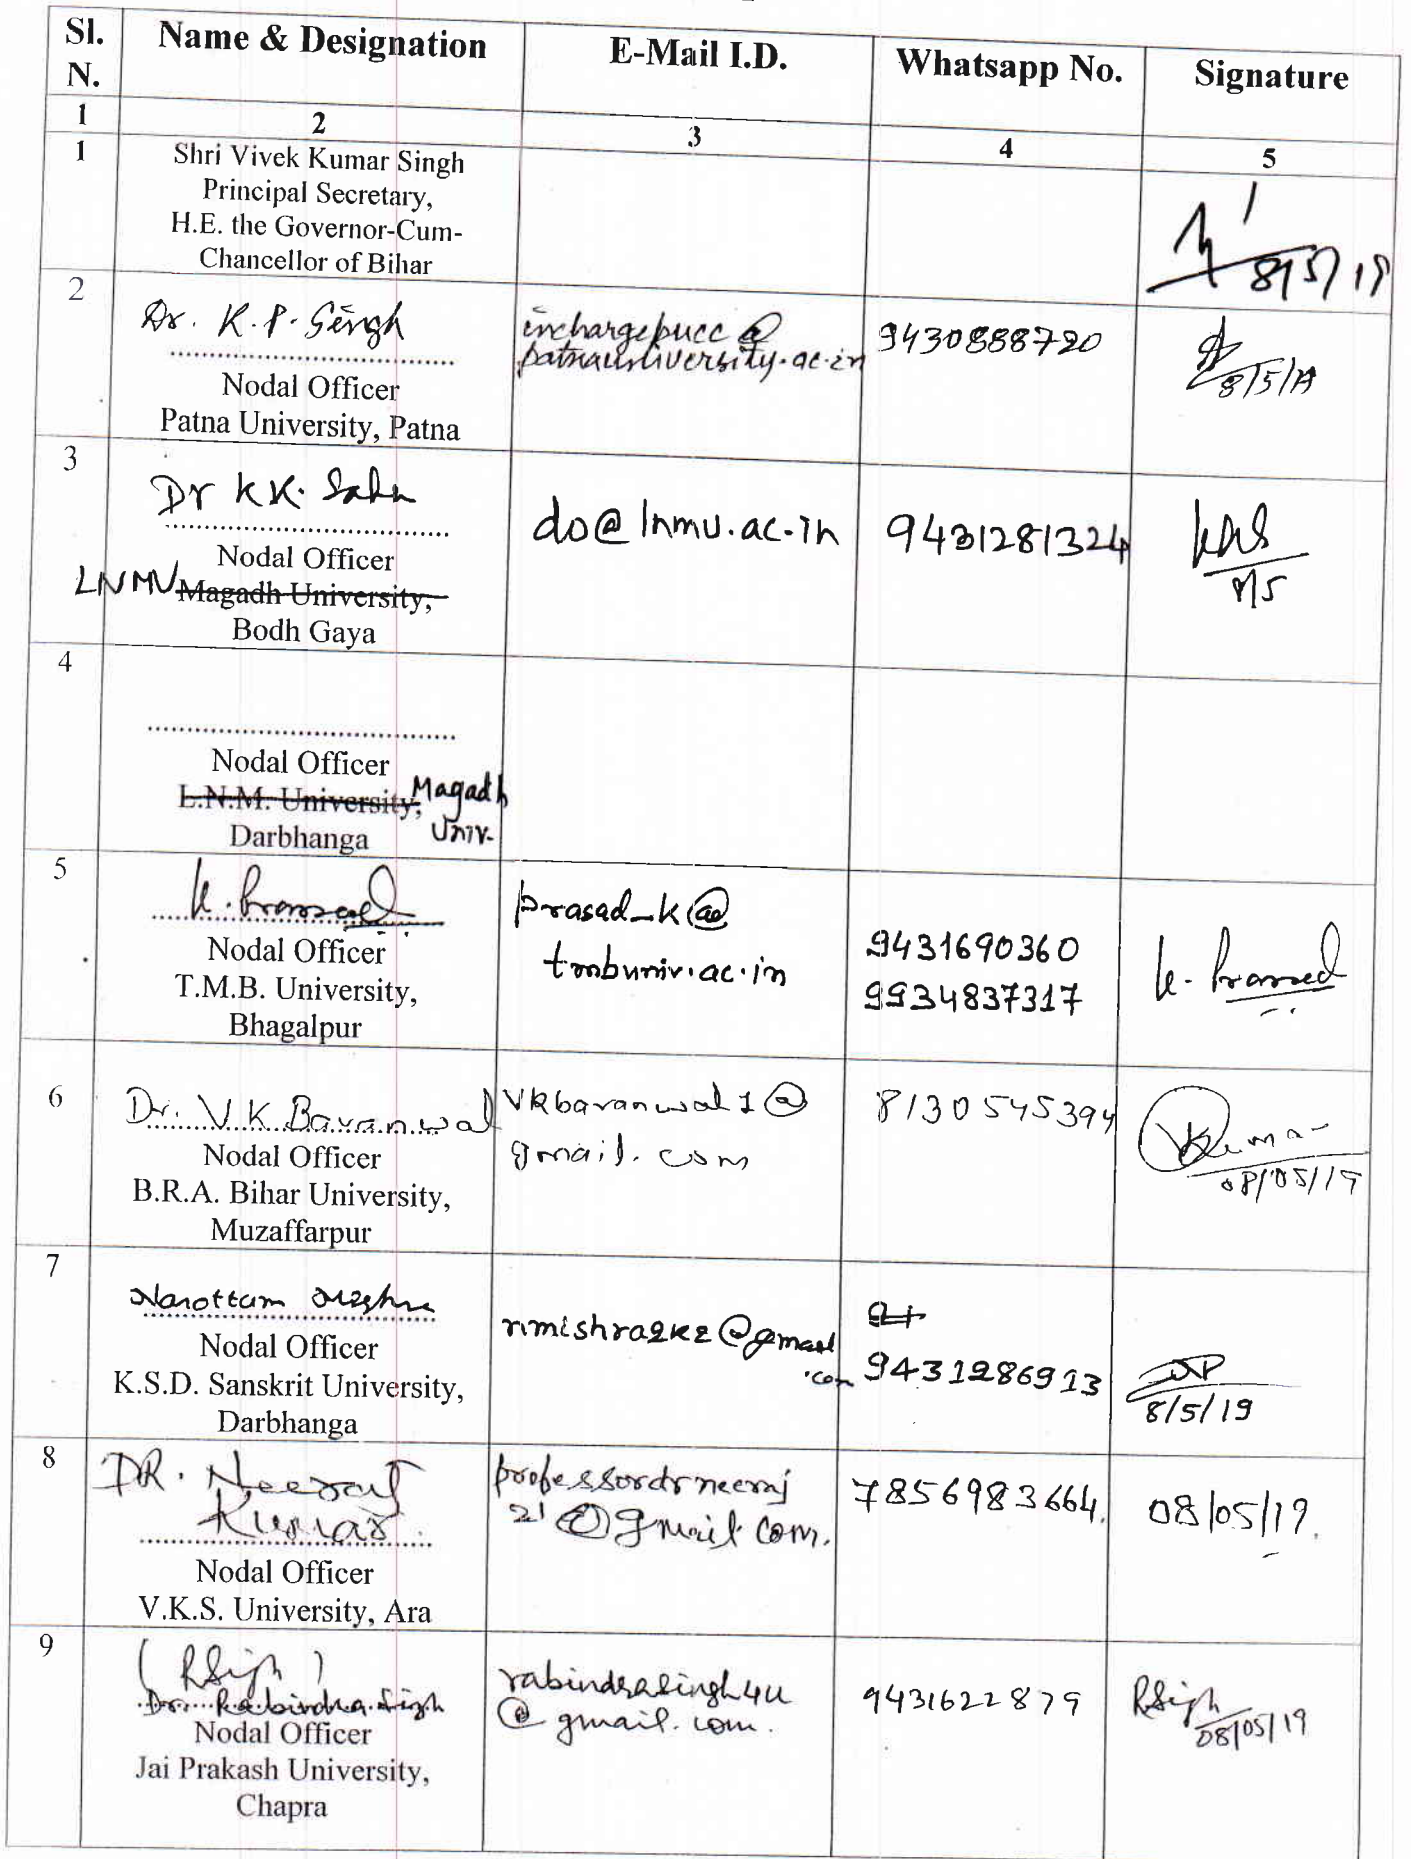 Sl. N.
Name & Designation
E-Mail I.D.
Whatsapp No.
Signature
1
2
3
4
5
1
Shri Vivek Kumar Singh
Principal Secretary,
H.E. the Governor-Cum-
Chancellor of Bihar
8/5/19
2
Dr. K.P. Singh
Nodal Officer
Patna University, Patna
inchargepucc@
patnauniversity.ac.in
9430888720
8/5/19
3
Dr KK. Sahu
Nodal Officer
LNMU Magadh University,
Bodh Gaya
do@lnmu.ac.in
9431281324
8/5
4
Nodal Officer
L.N.M. University, Magadh
Darbhanga Univ.
5
K. Prasad
Nodal Officer
T.M.B. University,
Bhagalpur
prasad_k@
tmbuniv.ac.in
9431690360
9934837317
K. Prasad
6
Dr. V.K Baranwal
Nodal Officer
B.R.A. Bihar University,
Muzaffarpur
vkbaranwal1@
gmail.com
8130545394
VKumar
08/05/19
7
Narottam Mishra
Nodal Officer
K.S.D. Sanskrit University,
Darbhanga
nmishra2k2@gmail
.com
9431286913
8/5/19
8
DR. Neeraj
Kumar
Nodal Officer
V.K.S. University, Ara
professordrneeraj
21@gmail.com.
7856983664.
08/05/19.
9
(RSingh)
Dr. Rabindra Singh
Nodal Officer
Jai Prakash University,
Chapra
rabindrasingh4u
@gmail.com.
9431622879
RSingh
08/05/19